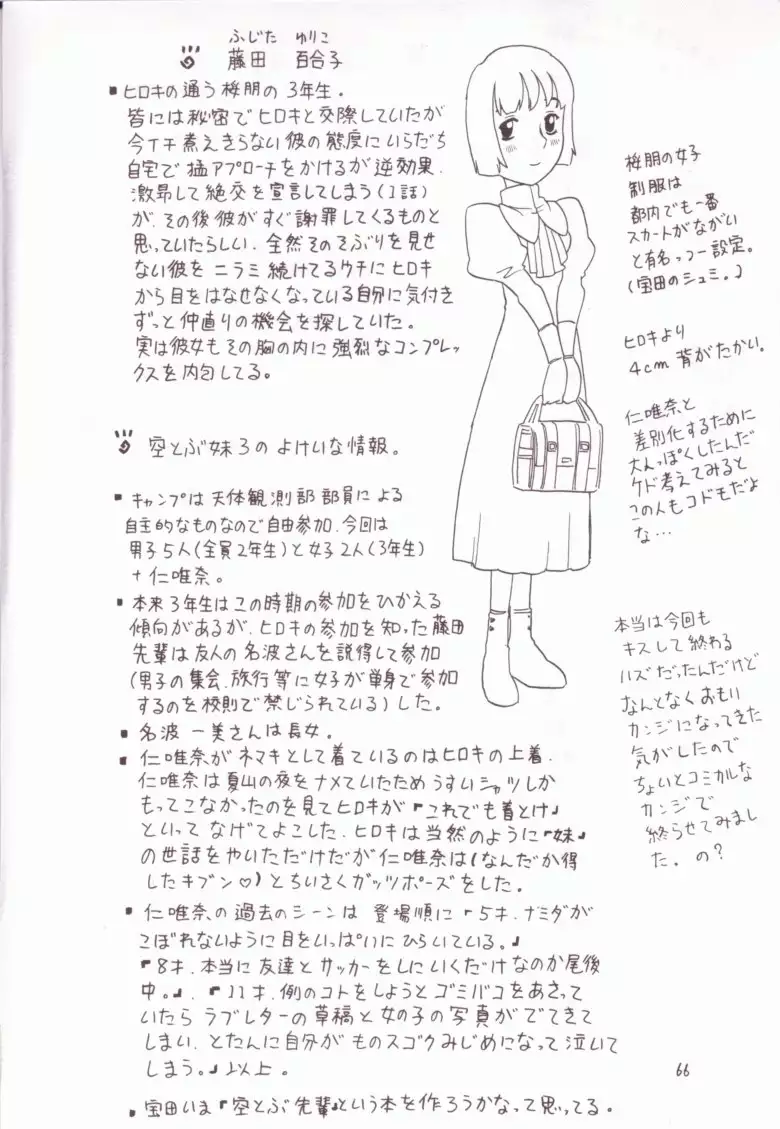 ふじた ゆりこ
藤田 百合子
▪ ヒロキの通う桜朋の3年生。
皆には秘密でヒロキと交際していたが
今イチ煮えきらない彼の態度にいらだち
自宅で猛アプローチをかけるが逆効果.
激昂して絶交を宣言してしまう(1話)
が、その後彼がすぐ謝罪してくるものと
思っていたらしい.全然そのそぶりを見せ
ない彼をニラミ続けてるウチにヒロキ
から目をはなせなくなっている自分に気付き
ずっと仲直りの機会を探していた。
実は彼女もその胸の内に強烈なコンプレッ
クスを内包してる。
桜朋の女子
制服は
都内でも一番
スカートがながい
と有名っつー設定。
(宝田のシュミ。)
ヒロキより
4cm 背がたかい。
仁唯奈と
差別化するために
大人っぽくしたんだ
ケド考えてみると
この人もコドモだよ
な…
本当は今回も
キスして終わる
ハズだったんだけど
なんとなくおもい
カンジになってきた
気がしたので
ちょいとコミカルな
カンジで
終らせてみまし
た。の?
空とぶ妹3のよけいな情報。
▪ キャンプは天体観測部部員による
自主的なものなので自由参加.今回は
男子5人(全員2年生)と女子2人(3年生)
+仁唯奈。
▪ 本来3年生はこの時期の参加をひかえる
傾向があるが、ヒロキの参加を知った藤田
先輩は友人の名波さんを説得して参加
(男子の集会、旅行等に女子が単身で参加
するのを校則で禁じられている)した。
▪ 名波 一美さんは長女。
▪ 仁唯奈がネマキとして着ているのはヒロキの上着.
仁唯奈は夏山の夜をナメていたためうすいシャツしか
もってこなかったのを見てヒロキが『これでも着とけ』
といってなげてよこした.ヒロキは当然のように『妹』
の世話をやいただけだが仁唯奈は(なんだか得
したキブン♡)とちいさくガッツポーズをした。
▪ 仁唯奈の過去のシーンは 登場順に『5才.ナミダが
こぼれないように目をいっぱいにひらいている。』
『8才.本当に友達とサッカーをしにいくだけなのか尾後
中。』.『11才.例のコトをしようとゴミバコをあさって
いたらラブレターの草稿と女の子の写真がでてきて
しまい.とたんに自分がものスゴクみじめになって泣いて
しまう。』以上。
▪ 宝田いま『空とぶ先輩』という本を作ろうかなって思ってる。
66